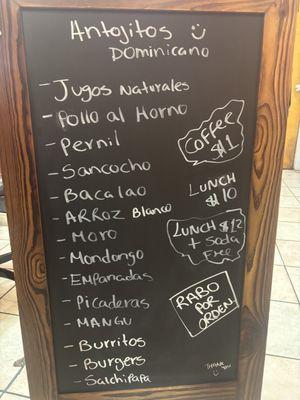 Antojitos
DOMINICANO
- Jugos Naturales
- Pollo al Horno
- Pernil
- Sancocho
- Bacalao
- ARROZ Blanco
- Moro
- Mondongo
- EMPANADAS
- Picaderas
- MANGU
- Burritos
- Burgers
- Salchipapa
COFFEE
$1
LUNCH
$10
LUNCH $12
+ Soda
Free
RABO
POR
ORDEN
THANK
YOU